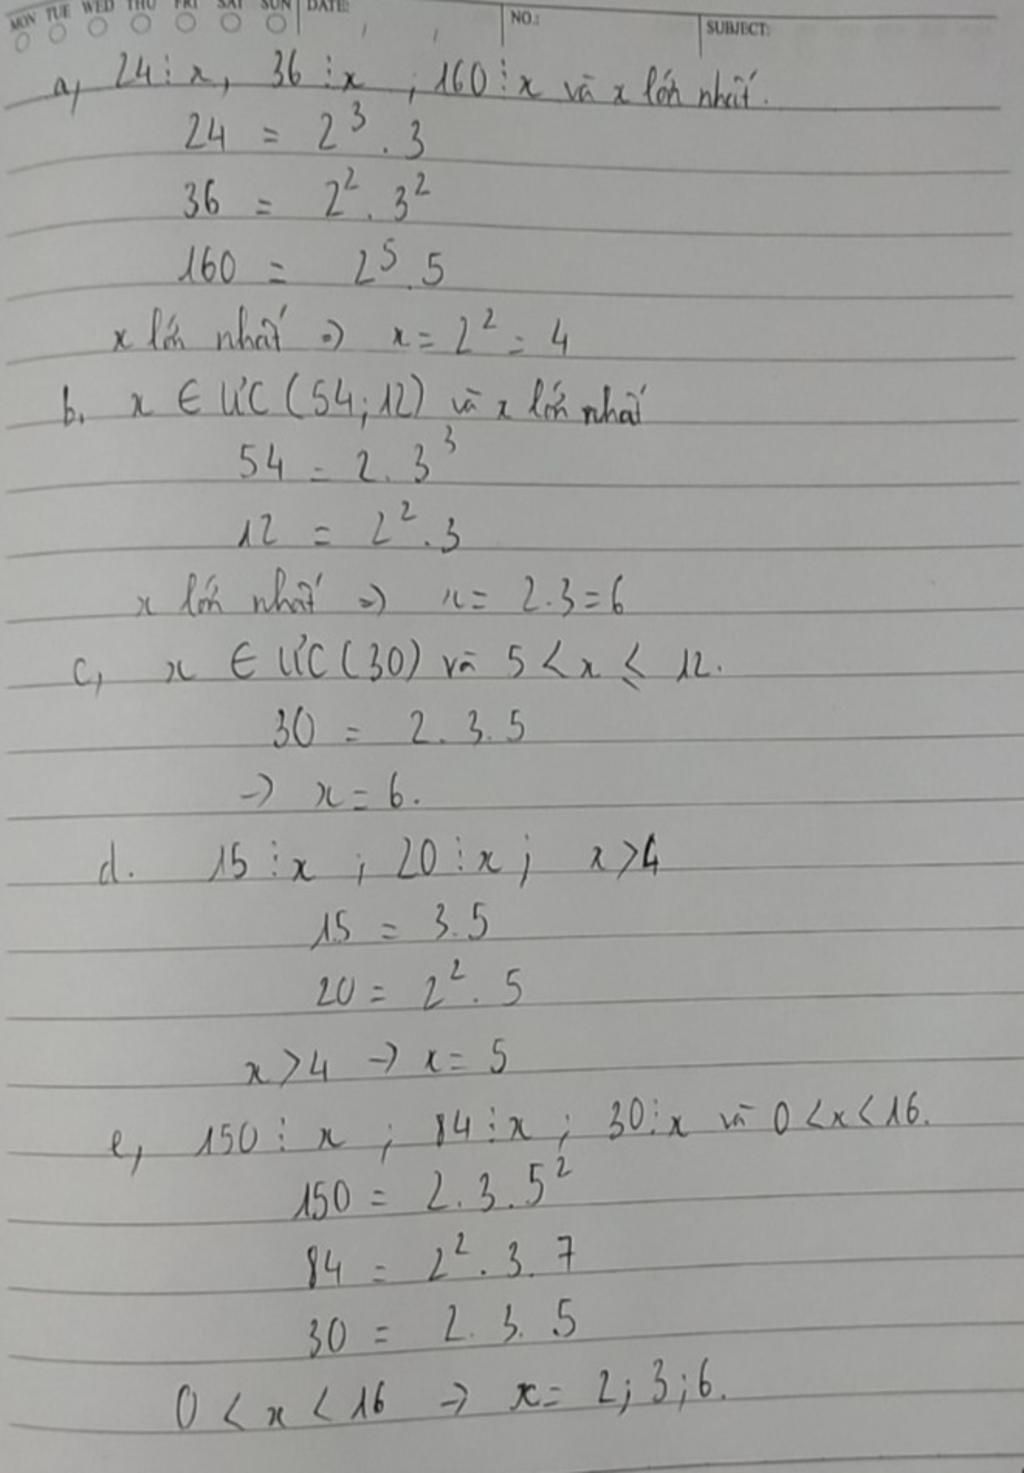 MON TUE WED THU FRI SAT SUN DATE: NO.: SUBJECT:
a, 24 ⋮ x, 36 ⋮ x ; 160 ⋮ x và x lớn nhất.
24 = 2³ . 3
36 = 2² . 3²
160 = 2⁵ . 5
x lớn nhất ⇒ x = 2² = 4
b. x ∈ ƯC (54; 12) và x lớn nhất
54 = 2. 3³
12 = 2² . 3
x lớn nhất ⇒ x = 2.3 = 6
c, x ∈ ƯC (30) và 5 < x ≤ 12.
30 = 2. 3. 5
→ x = 6.
d. 15 ⋮ x ; 20 ⋮ x ; x > 4
15 = 3. 5
20 = 2² . 5
x > 4 → x = 5
e, 150 ⋮ x ; 84 ⋮ x ; 30 ⋮ x và 0 < x < 16.
150 = 2. 3. 5²
84 = 2² . 3. 7
30 = 2. 3. 5
0 < x < 16 → x = 2; 3; 6.